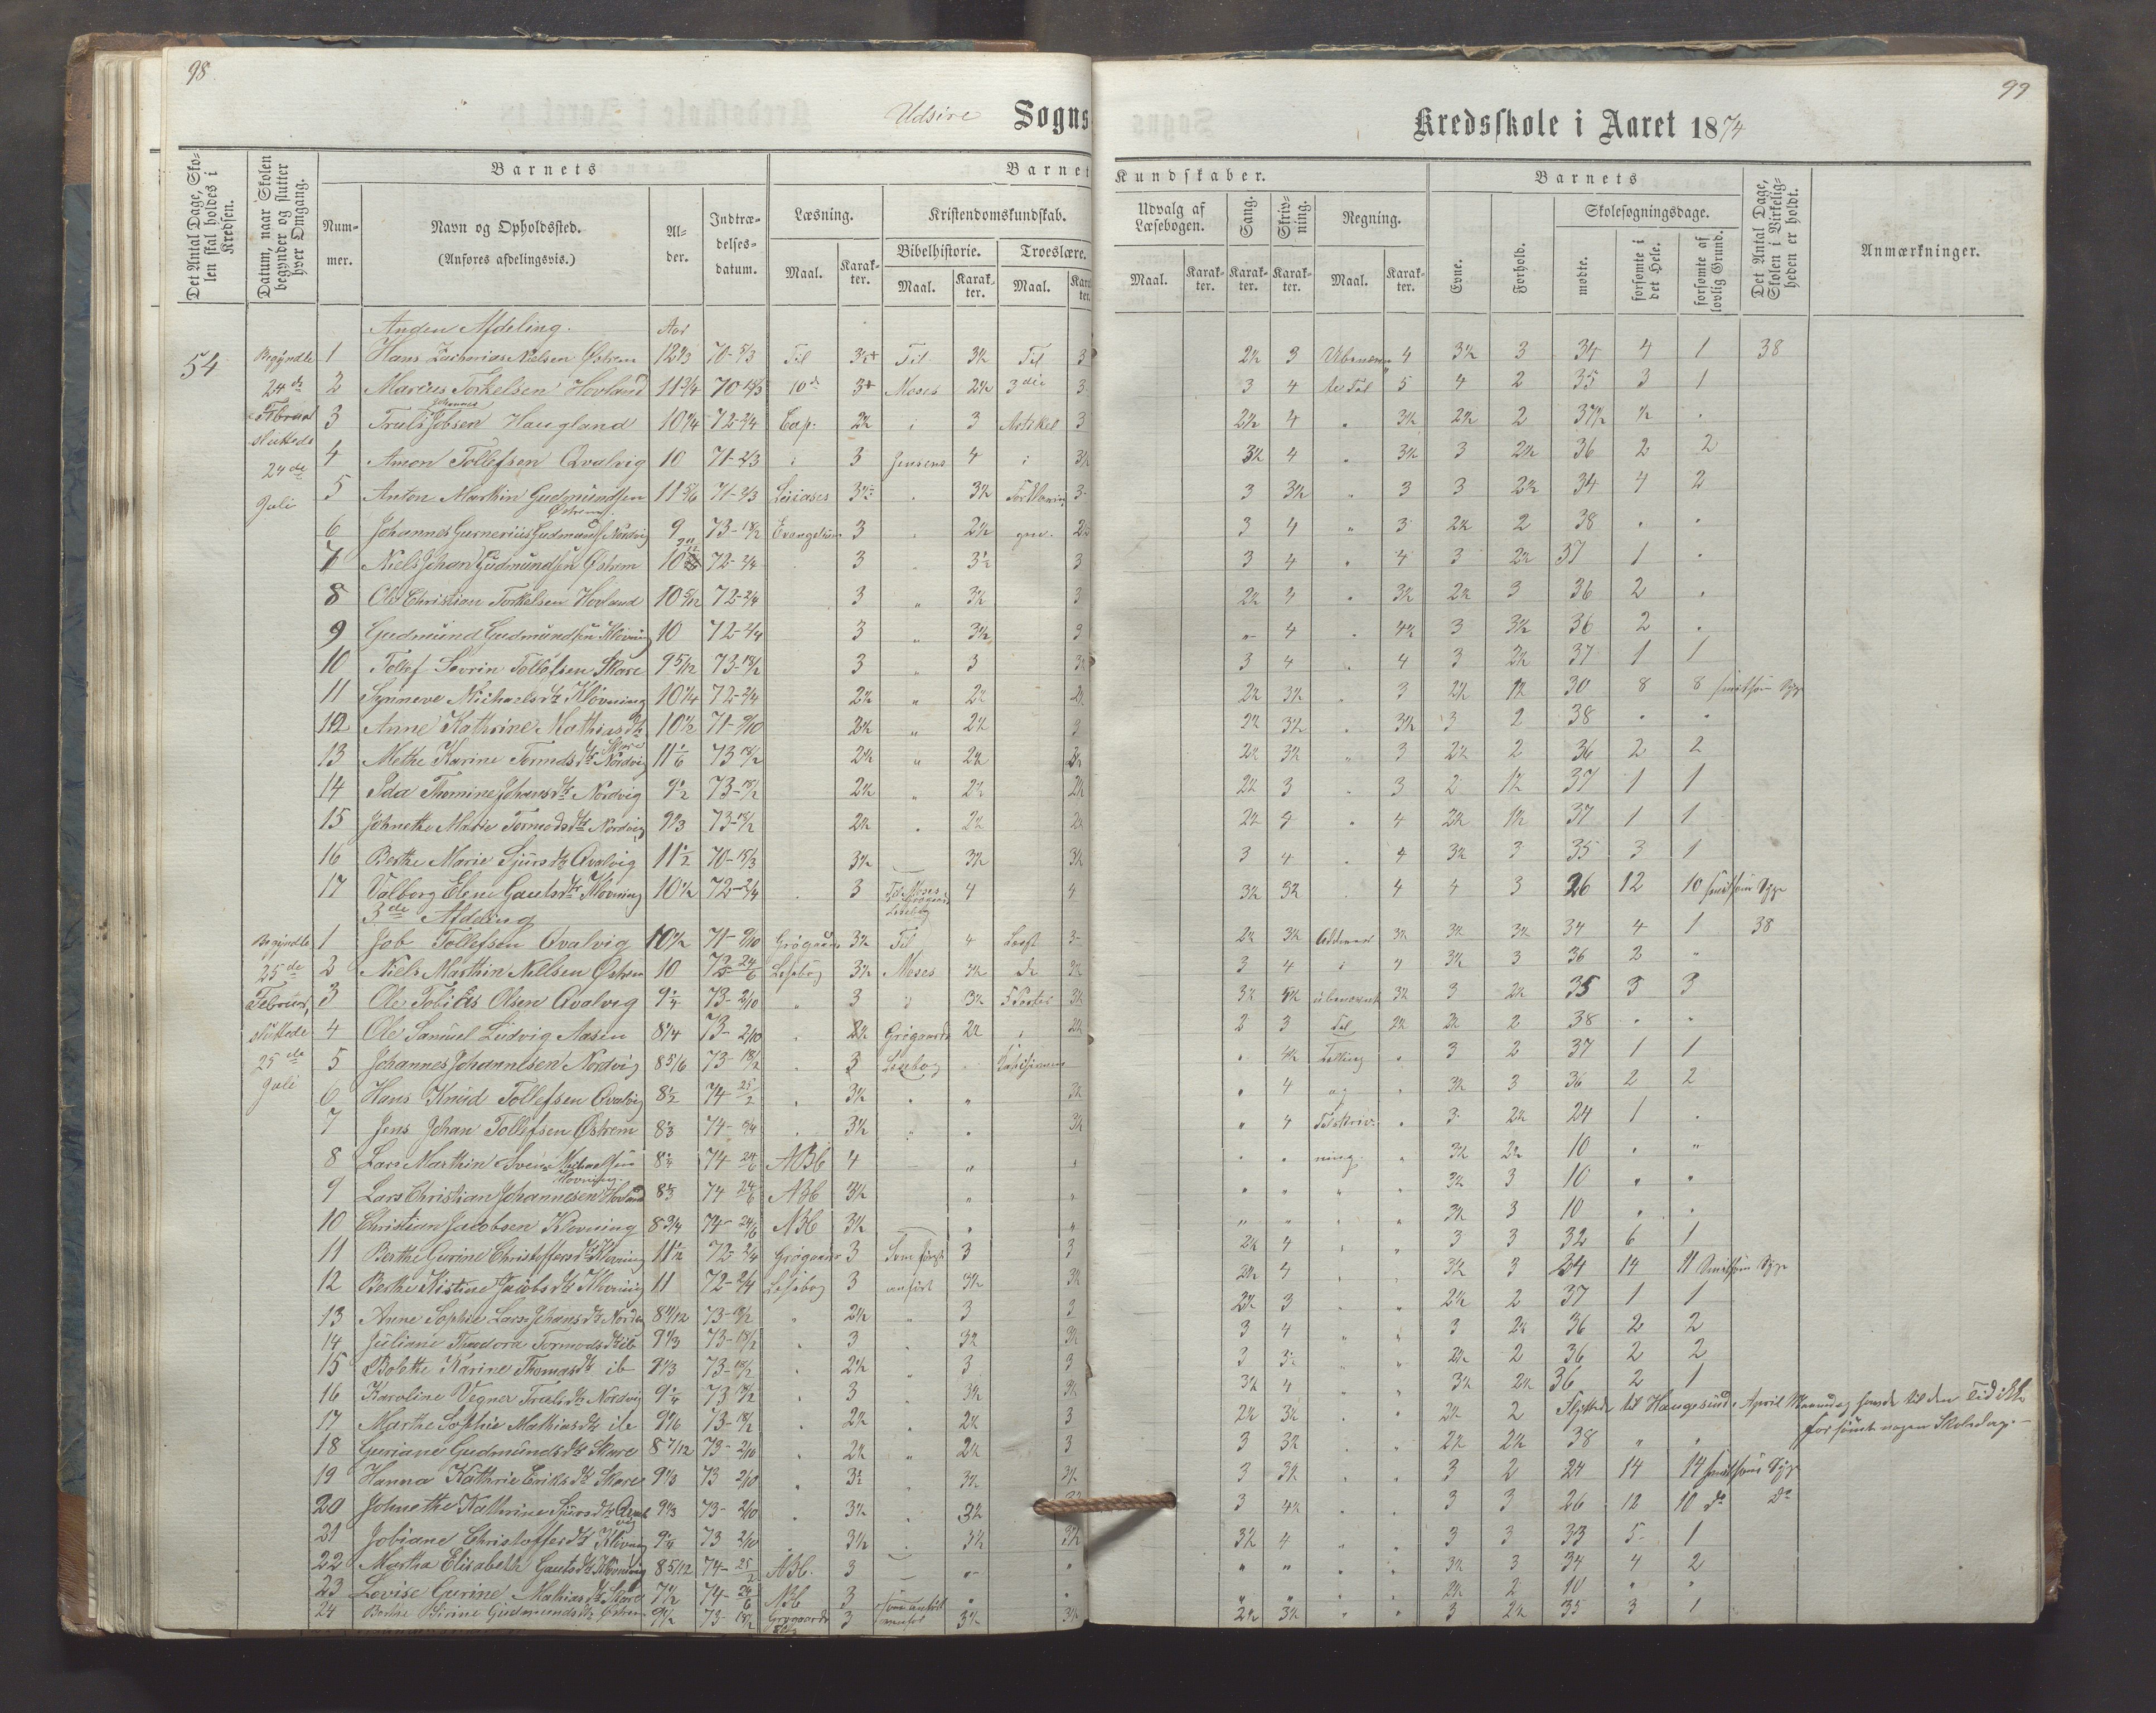 98
99
Udsire Sogns Kredsskole i Aaret 1874
Det Antal Dage, Skolen skal holdes i Kredsen.
Datum, naar Skolen begynder og slutter hver Omgang.
Barnets
Nummer.
Navn og Opholdssted. (Anføres afdelingsvis.)
Alder.
Indtrædelsesdatum.
Barnets Kundskaber.
Læsning.
Maal. Karakter.
Kristendomskundskab.
Bibelhistorie. Troeslære.
Maal. Karakter. Maal. Karakter.
Udvalg af Læsebogen.
Maal. Karakter.
Sang. Karakter.
Skrivning. Karakter.
Regning.
Maal. Karakter.
Barnets
Evne.
Forhold.
Skolesøgningsdage.
mødte.
forsømte i det Hele.
forsømte af lovlig Grund.
Det Antal Dage, Skolen i Virkeligheden er holdt.
Anmærkninger.
Anden Afdeling. Aar
54 Begyndte 24de Februar sluttede 24de Juli
1 Hans Zacharias Nielsen Østrem 12 1/3 70-5/3 Til 3½+ Til 3½ Til 3 2½ 3 4 3½ 3 34 4 1 38
2 Marius Torkelsen Hovland 11 3/4 70 15/3 10de 3+ Moses 2½ 3die 3 3 4 5 4 2 35 3 1
3 Truls Johannes Jobsen Haugland 10 1/4 72-2/4 Cap. 2½ 3 Artikel 3 2½ 4 3½ 2½ 2 37½ ½
4 Amon Tollefsen Qvalvig 10 71-2/3 3 Jensens 4 3½ 3½ 4 3½ 3 2½ 36 2 2
5 Anton Marthin Gudmundsen Østrem 11 5/6 71-2/3 3½ 3½ Forklaring 3 3 3½ 3 3 2½ 34 4 2
6 Johannes Gurnerius Gudmunds. Nordvig 9 73-18/2 Evangelium 3 2½ 3 4 3 2½ 2 38
7 Niels Johan Gudmundsen Østrem 10 72-2/4 3 3½ 3 3 4 4 3 2½ 37 1
8 Ole Christian Torkelsen Hovland 10 5/12 72-2/4 3 3½ 3 2½ 4 3½ 2½ 3 36 2
9 Gudmund Gudmundsen Klovning 10 72-2/4 3 3½ 3 4 4½ 3 3½ 36 2
10 Tollef Sevrin Tollefsen Skare 9 5/12 73-18/2 3 3 3½ 3 4 4 3 2½ 37 1 1
11 Synneve Michaels dt Klovning 10 1/4 72-2/4 2½ 2½ 2½ 2½ 3½ 3 2½ 1½ 30 8 8
12 Anne Kathrine Mathias dt Skare 10½ 71-2/10 2½ 2½ 3 2½ 3½ 3½ 3 2 38
13 Methe Karine Tormds dt Nordvig 11 1/6 73 18/2 2½ 2½ 2½ 2½ 3½ 3 2½ 2 36 2 2
14 Ida Thomine Johans dt Nordvig 9½ 73-18/2 2½ 2½ 2½ 2½ 3 3 2 1½ 37 1 1
15 Johnethe Marie Tormods dt Nordvig 9 1/3 73-18/2 2½ 2½ 2½ 2½ 4 2½ 1½ 37 1 1
16 Berthe Marie Sjurs dt Qvalvig 11½ 70-15/3 3½ 3½ 3½ 3 4 4 3½ 3 35 3 1
17 Valborg Elene Gauts dtr Klovning 10½ 72-2/4 3 Til Moses Grøgaards Læsebog 4 4 3½ 3½ 4 4 3 26 12 10
3de Afdeling
Begyndte 25de Februar, sluttede 25de Juli
1 Job Tollefsen Qvalvig 10½ 71-2/10 Grøgaards 3½ Til 4 Læst 3 2½ 3½ 3½ 3½ 3½ 34 4 1 38
2 Niels Marthin Nellsen Østrem 10 73-24/6 Læsebog 3½ Moses 3½ de 3½ 3 4 3½ 3 36 2
3 Ole Tobias Olsen Qvalvig 9¼ 73-2/10 3 3½ 5 Parter 3½ 3½ ubenævnt 3½ 3 2½ 35 3 3
4 Ole Samuel Ludvig Aasen 8 1/4 73-2/10 2½ Grøgaards 2½ 2½ 2 3 Tal 2½ 2½ 2 38
5 Johannes Johannesen Nordvig 8 5/6 73-18/2 3 Læsebog 4½ Tælling 3 2 37 1 1
6 Hans Knud Tollefsen Qvalvig 8½ 74 25/2 3½ 3½ 4 og 3½ 3 36 2 2
7 Jens Johan Tollefsen Østrem 8 1/3 74- 3½ 3½ 4 Talskriv- 3 2½ 24 1
8 Lars Marthin Svens Michaelsen Klovning 8¼ 74-24/6 ABC 4 ning. 3½ 2½ 10
9 Lars Christian Johannesen Hovland 74 24/6 ABC 3½ 3½ 3 10
10 Christian Jacobsen Klovning 8 3/4 74-24/6 ABC 3½ 3½ 3 10
11 Berthe Gurine Christoffers dt Klovning 11½ 72-2/4 Grøgaards 3 Som først 3 3 2½ 4 3 3 32 6 1
12 Berthe Kistine Jacobs dt Klovning 11 72-2/4 Læsebog 3 anført 3½ 3½ 2½ 4 3½ 3 24 14 11
13 Anne Sophie Lars Johans dt Nordv. 8 11/12 73-18/2 2½ 3 3 2½ 3 2½ 2 37 1 1
14 Juliane Theodora Tormods dt ib 9 1/3 73-18/2 3 3½ 3½ 3 4 3 2½ 36 2 2
15 Bolette Karine Thomas dt ib 73-18/2 2½ 3 3 3 3½ 2½ 2 36 2 2
16 Karoline Vegner Truls dt Nordvig 9¼ 73 18/2 3 3½ 3½ 3½ 4 3½ 2½ 36 2 1
17 Marthe Sophie Mathias dt ib 9 1/6 73-18/2 2½ 2½ 3 2½ 3½ 2½ 2 Flyttede til Haugesund i April Maaned, havde til den Tid ikke
forsømt nogen Skoledag.
18 Guriane Gudmunds dt Skare 8 7/12 73-2/10 2½ 2½ 3 3 3½ 2½ 2½ 38
19 Hanna Kathrie Eriks dt Skare 9 1/3 73 2/10 3½ 3½ 3½ 3 3½ 3 2 24 14 14
20 Johnethe Kathrine Sjurs dt Qvalvig 9 1/3 73-2/10 3½ 3½ 3 4½ 3 3 26 12 10 do do
21 Jobiane Christoffers dt Klovning 9¼ 73 2/10 3½ 3½ 3½ 3½ 4 3 3 33 5 1
22 Martha Elisabeth Gauts dt Klovning 8 5/12 74-25/2 ABC. 3 3½ 3 34 4 2
23 Lovise Gurine Mathias dt Skare 7½ 74-24/6 ABC 3 2½ 2 10
24 Berthe Sirine Gudmunds dt Østrem 9½ 73-18/2 Grøgaards 3 3½ 3½ 2½ 3½ 3 2½ 35 3 1